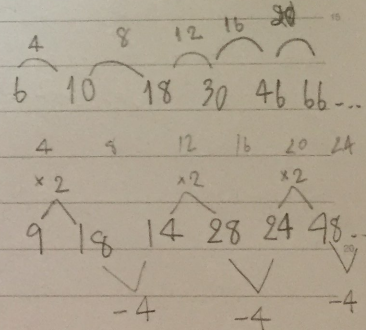 4 8 12 16 20
6 10 18 30 46 66 ...
4 8 12 16 20 24
×2 ×2 ×2
9 18 14 28 24 48 ..
-4 -4 -4